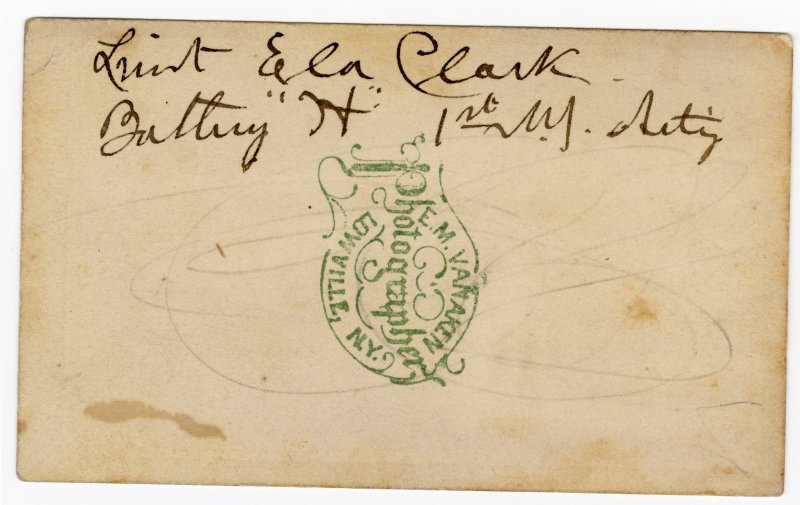 Lieut Ela Clark
Battery "H" 1st N.Y. Arty
E.M. VAN AKEN
Photographer
LOWVILLE, N.Y.